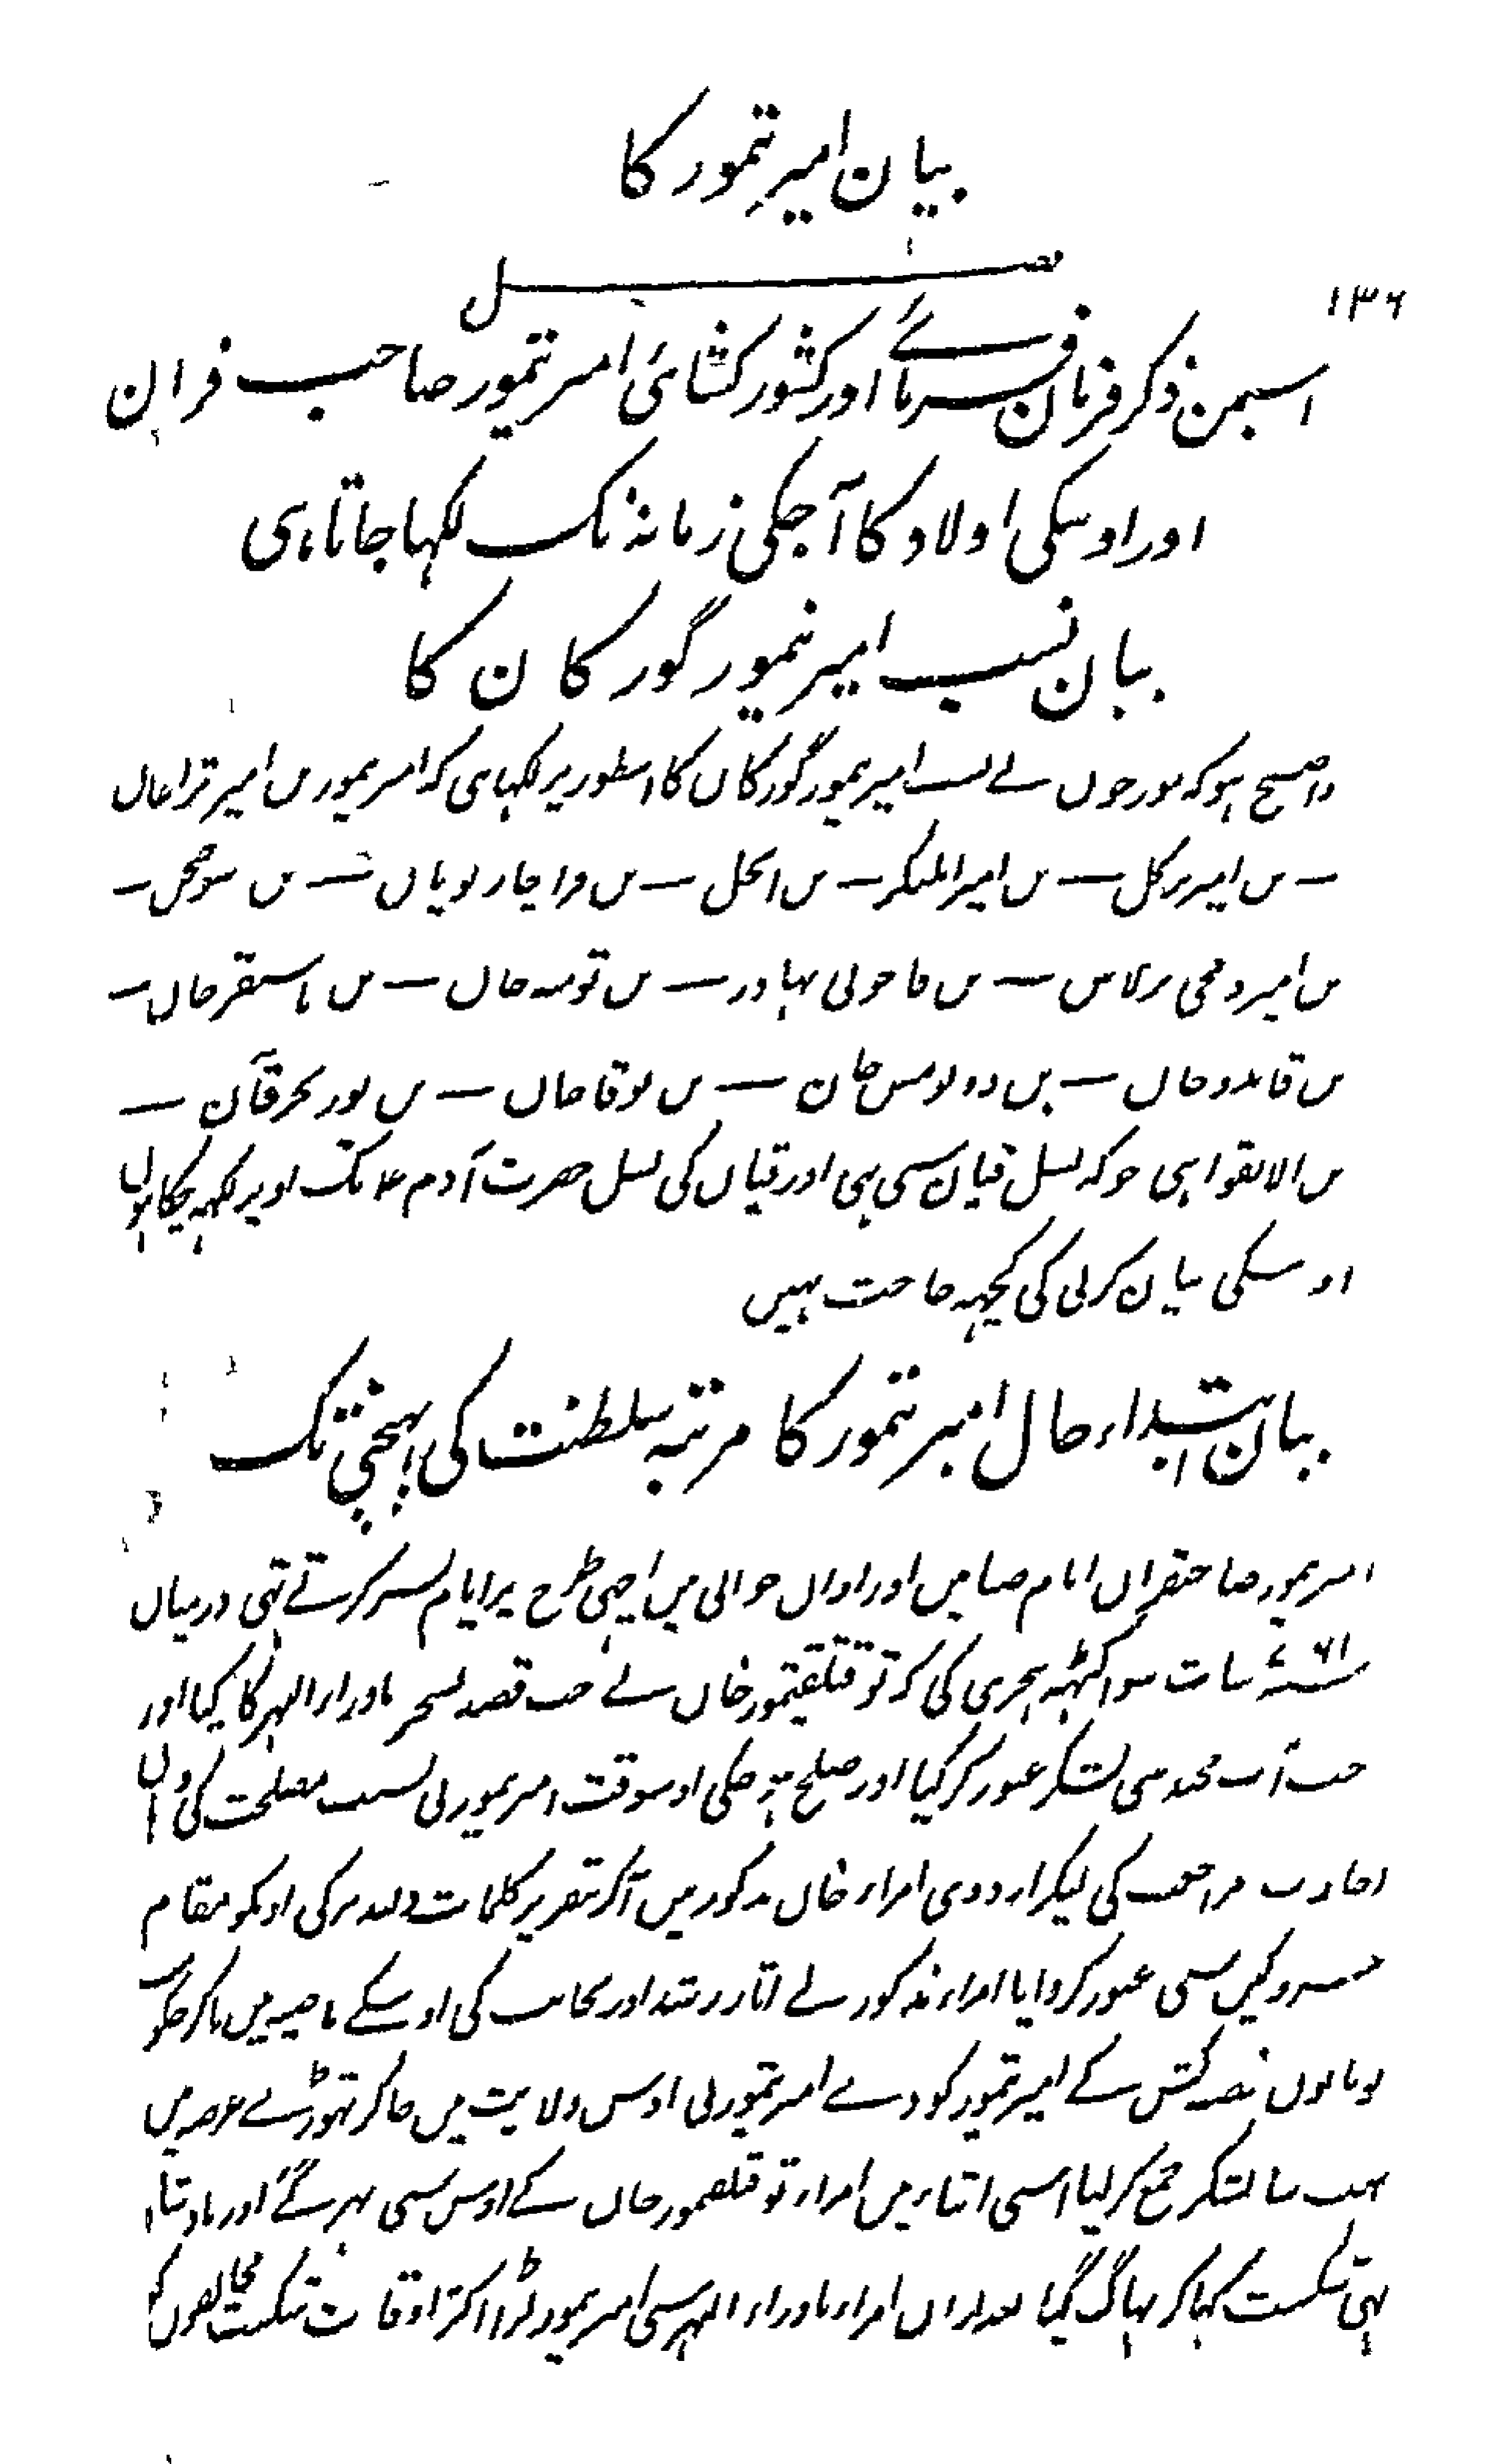 بیان امیر تیمور کا
۱۳۶
فصل
اسیمن ذکر فرمان فرمائے اور کشور کشائی امیر تیمور صاحب قران
اور اوسکی اولاد کا آجکی زمانہ تک لکہا جاتا ہی
بیان نسب امیر تیمور گورکان کا
واضح ہو کہ مورخوں نے نسب امیر تیمور گورکان کا اسطور پر لکہا ہی کہ امیر تیمور بن امیر
بن امیر برکل — بن امیر — بن — بن — بن
بن امیر برلاس — بن بہادر — بن تومنہ خان — بن بایسنقر خان —
بن قایدو خان — بن خان — بن بوقا خان — بن
بن الانقوا ہی جو کہ نسل قیان سی ہی اور قیان کی نسل حضرت آدم ع تک اوپر لکہہ چکا ہوں
اوسکی بیان کرنی کی کچہہ حاجت نہیں
بیان ابتداء حال امیر تیمور کا مرتبہ سلطنت کی پہنچنی تک
امیر تیمور صاحبقران ایام صبا میں اور اوان جوانی میں اچہی طرح پر ایام بسر کرتے تہی درمیان
۷۶۱ سنہ سات سو اکسٹہہ ہجری کی کہ توقتلقتیمور خان نے جب قصد تسخیر ماوراء النہر کا کیا اور
جب آب خجند سی لشکر عبور کر گیا اور صلح ہو چکی اوسوقت امیر تیمور نی بسبب مصلحت کی وہاں
اجازت مراجعت کی لیکر اردوی امراء خان مذکور میں آکر تقریر کلمات کی اونکو مقام
سی عبور کروایا امراء مذکور نے اثار رشد اور نجابت کی اوسکے ناصیہ میں پاکر حکومت
کش کے امیر تیمور کو دے امیر تیمور نی اوس ولایت میں جاکر تہوڑے عرصہ میں
بہت سا لشکر جمع کر لیا اسی اثناء میں امراء توقتلقتیمور خان کے اوس سی پہر گئے اور بادشاہ
بہی شکست کہا کر بہاگ گیا بعد ازاں امراء ماوراء النہر سی امیر تیمور لڑا اکثر اوقات شکست مخالفوں کو